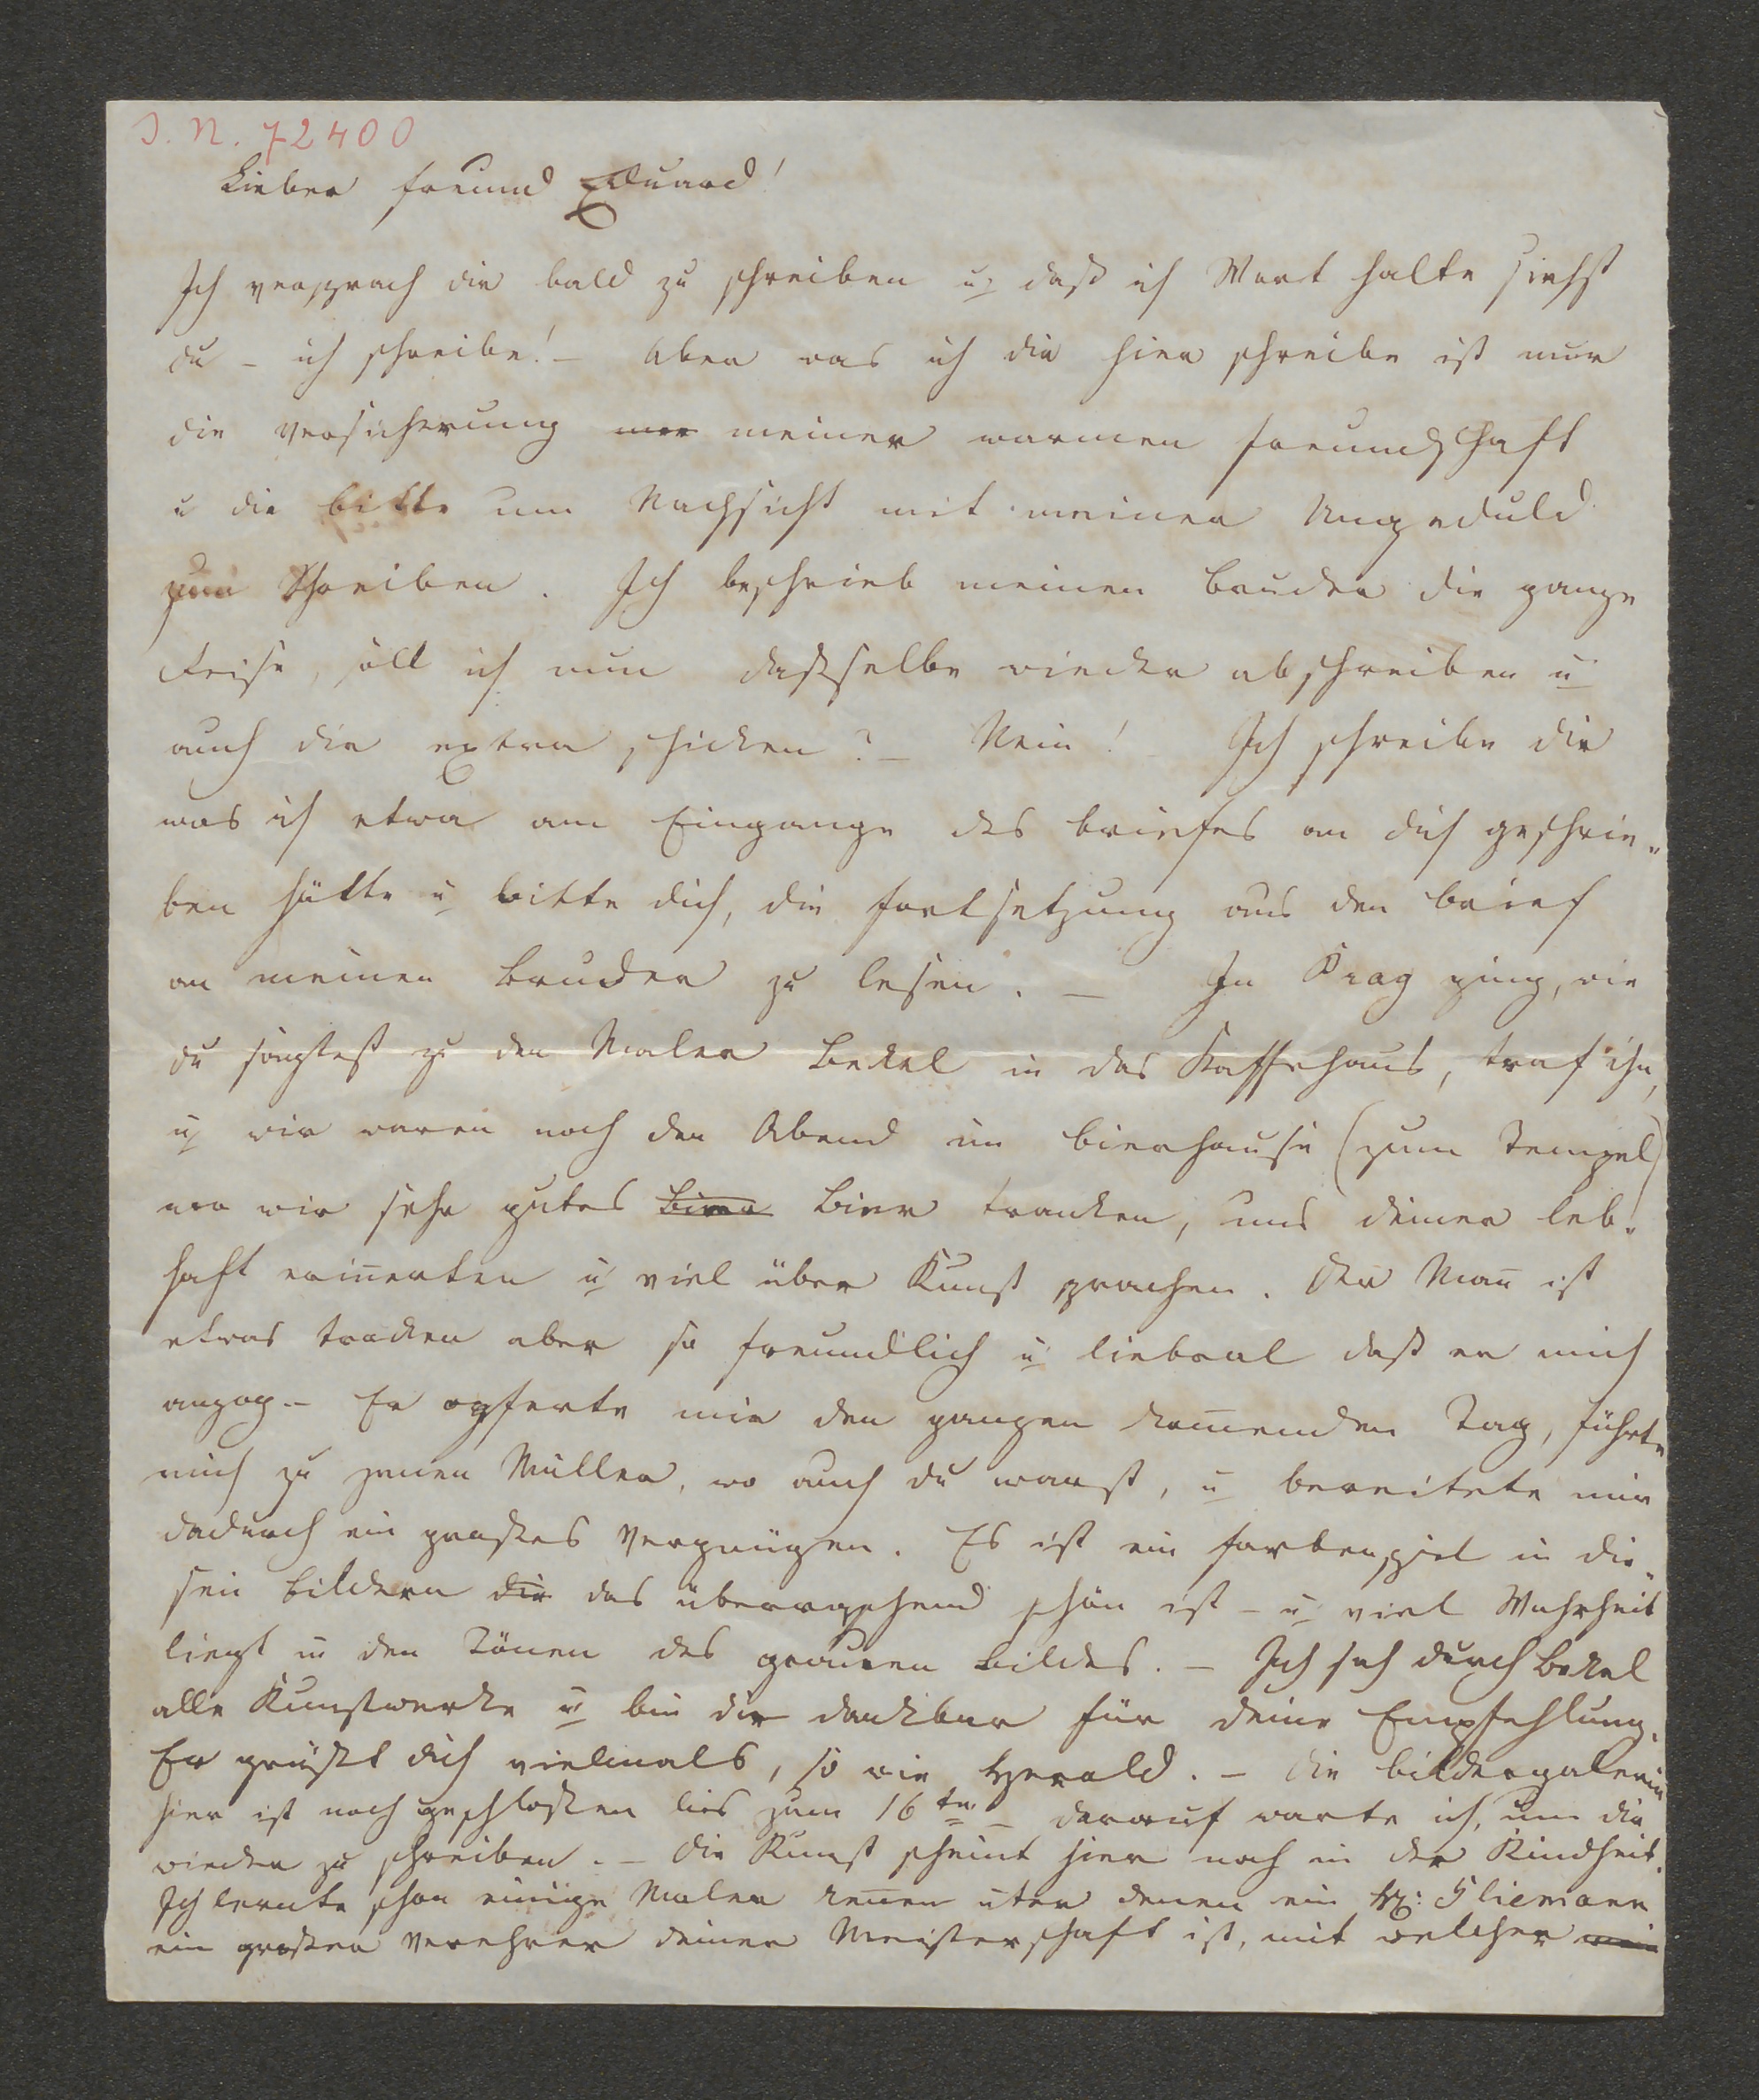 I. N. 72400
Lieber Freund Eduard!
Ich versprach dir bald zu schreiben u daß ich Wort halte siehst
du – ich schreibe! – Aber was ich dir hier schreibe ist nur
die Versicherung mer meiner warmen Freundschaft
u die Bitte um Nachsicht mit meiner Ungeduld
zum Schreiben. Ich beschrieb meinem Bruder die ganze
Reise, soll ich nun dasselbe wieder abschreiben u
auch dir extra schicken? – Nein! Ich schreibe dir
was ich etwa am Eingange des Briefes an dich geschrie„
ben hätte u bitte dich, die Fortsetzung aus den Brief
an meinen Bruder zu lesen. – In Prag ging, wie
du sagtest zu den Maler Bekel in das Kaffehaus, traf ihn,
u wir waren noch den Abend im Bierhause (zum Tempel)
wo wir sehr gutes Bier Bier tranken, uns deiner leb„
haft erin̄erten u viel über Kunst sprachen. Der Man̄ ist
etwas trocken aber so freundlich u liebral daß er mich
anzog. – Er opferte mir den ganzen kom̄enden Tag, führte
mich zu jenen Müller, wo auch du warst, u bereitete mir
dadurch ein großes Vergnügen. Es ist ein Farbenspiel in die„
sen Bildern die das überraschend schön ist – u viel Wahrheit
liegt in den Tönen des grauen Bildes. – Ich sah durch Bekel
alle Kunstwerke u bin dir dankbar für deine Empfehlung.
Er grüßt dich vielmals, so wie Herold. – Die Bildergalerie
hier ist noch geschloßen bis zum 16ten – darauf warte ich, um dir
wieder zu schreiben. – Die Kunst scheint hier noch in der Kindheit.
Ich lernte schon einige Maler ken̄en unter denen ein Hr: Gliemann
ein großer Verehrer deiner Meisterschaft ist, mit welcher